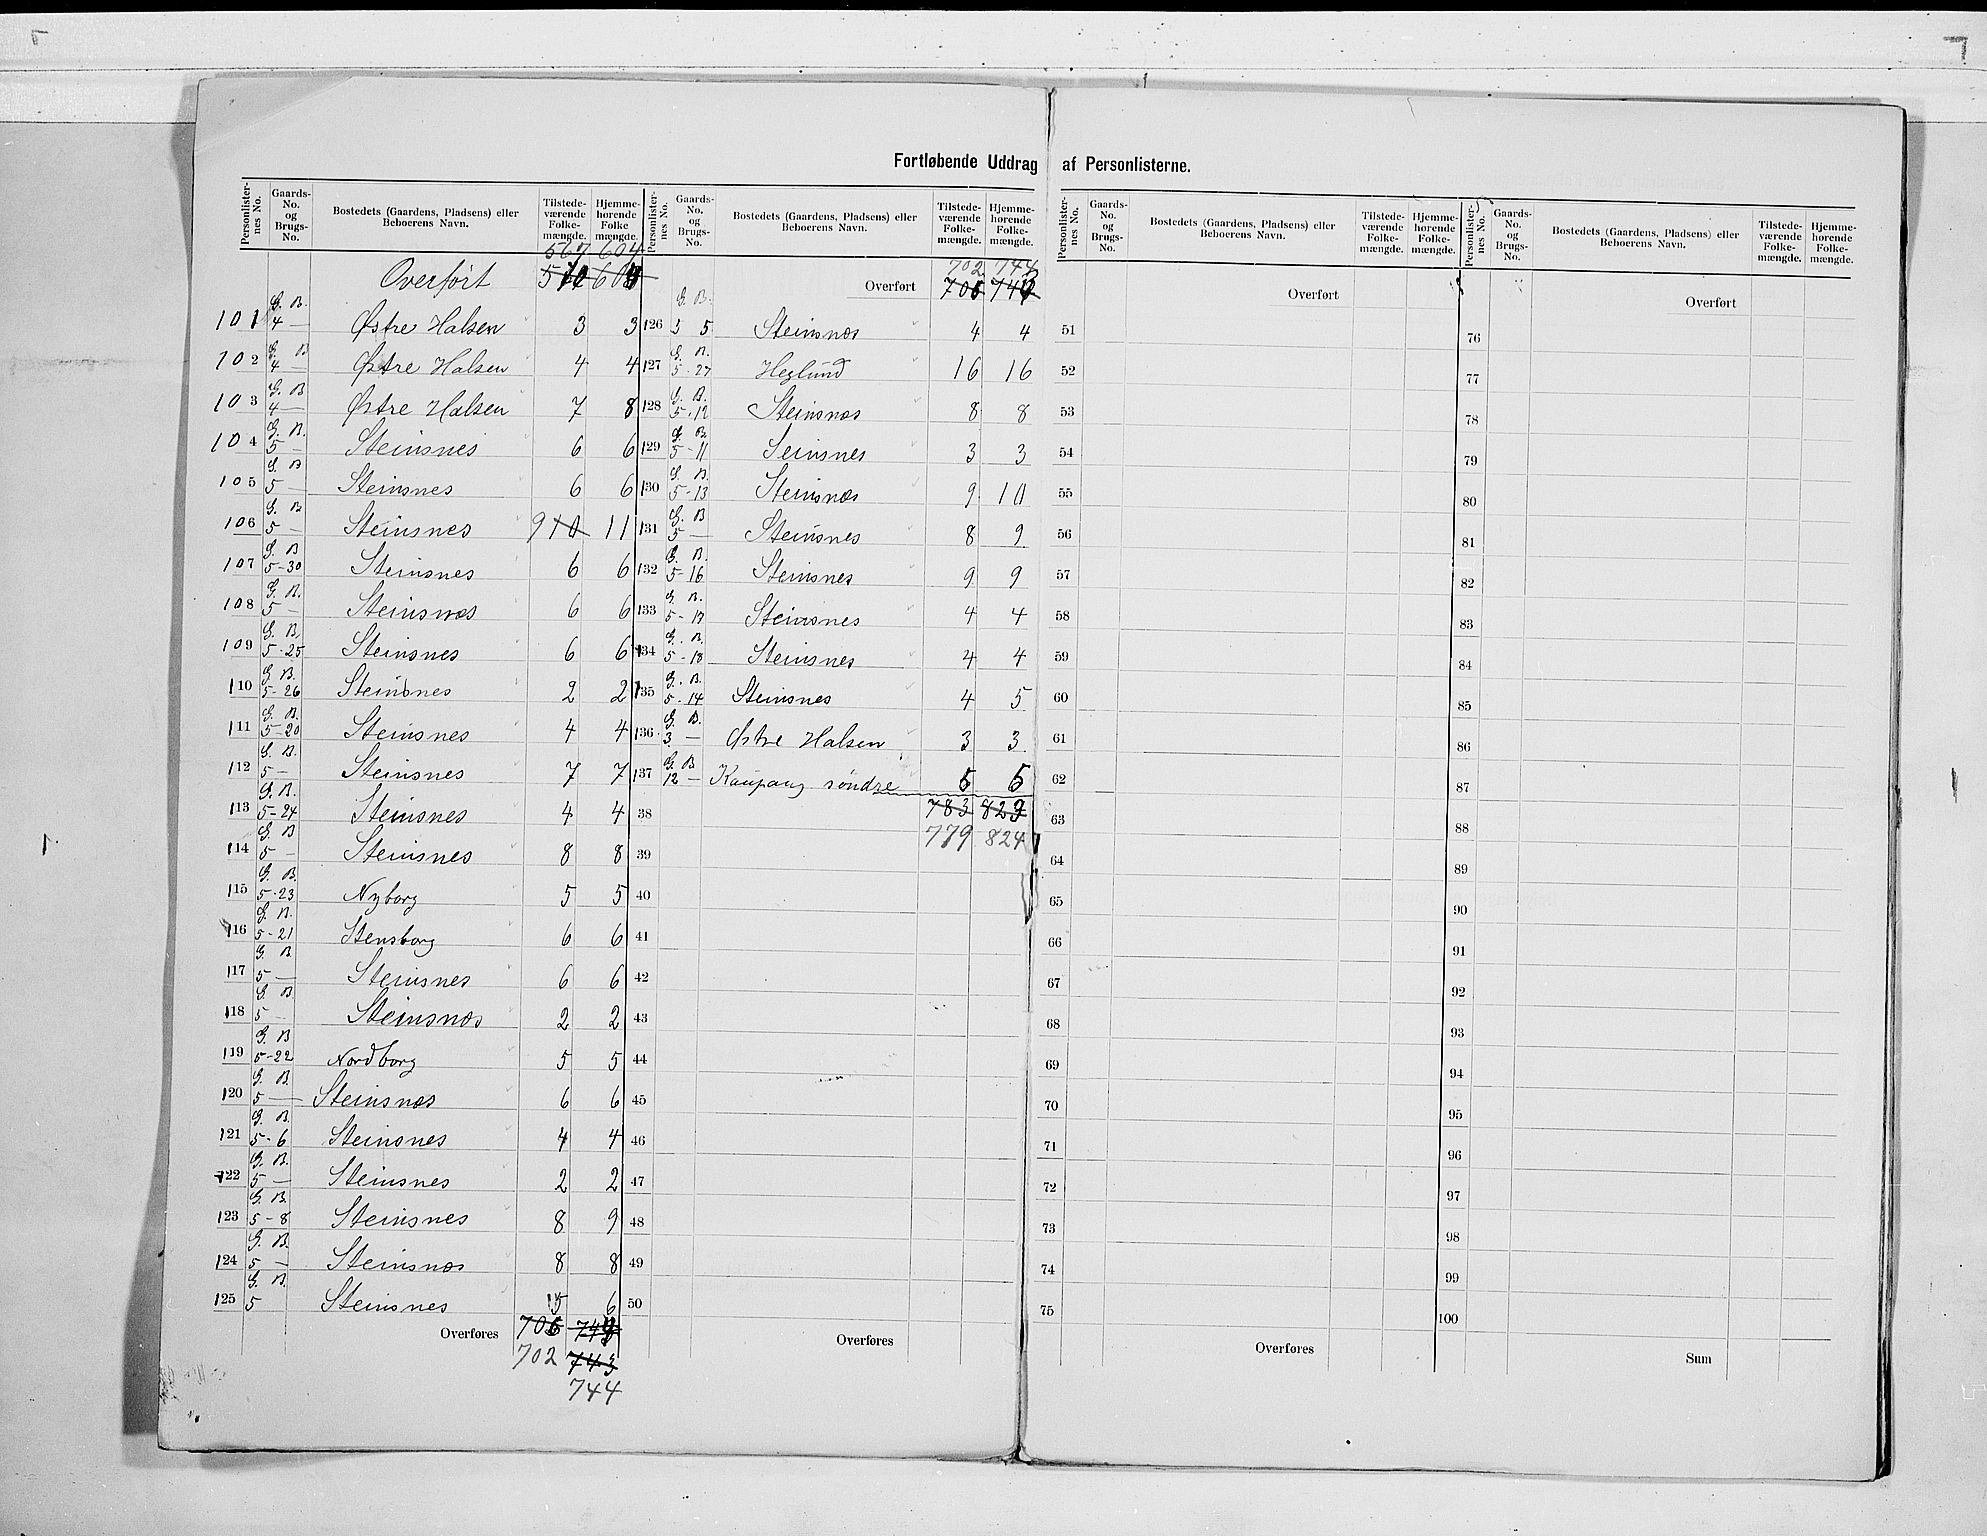 Fortløbende Uddrag af Personlisterne.
Personlister-nes No. Gaards-No. og Brugs-No. Bostedets (Gaardens, Pladsens) eller Beboerens Navn. Tilstede-værende Folke-mængde. Hjemme-hørende Folke-mængde.
567 604
Overført
G. B.
101 4 — Østre Halsen 3 3
G. B
102 4 — Østre Halsen 4 4
G. B
103 4 — Østre Halsen 7 8
G. B.
104 5 — Steinsnes 6 6
G. B
105 5 — Steinsnes 6 6
G. B
106 5 — Steinsnes 9 10 11
G. B
107 5-30 Steinsnes 6 6
G. B.
108 5 — Steinsnæs 6 6
G. B.
109 5-25 Steinsnes 6 6
G. B.
110 5-26 Steinsnes 2 2
G. B.
111 5-20 Steinsnes 4 4
G. B.
112 5 — Steinsnes 7 7
G. B.
113 5-24 Steinsnes 4 4
G. B
114 5 — Steinsnes 8 8
G. B.
115 5-23 Nyborg 5 5
G. B.
116 5-21 Stensborg 6 6
G. B
117 5 — Steinsnes 6 6
G. B.
118 5 — Steinsnæs 2 2
G. B
119 5-22 Nordborg 5 5
G. B.
120 5 — Steinsnæs 6 6
G. B.
121 5-6 Steinsnes 4 4
G. B.
122 5 — Steinsnes 2 2
G. B.
123 5-8 Steinsnes 8 9
G. B.
124 5 — Steinsnæs 8 8
G. B.
125 5 Steinsnes 5 6
Overføres
702 743
744
Personlister-nes No. Gaards-No. og Brugs-No. Bostedets (Gaardens, Pladsens) eller Beboerens Navn. Tilstede-værende Folke-mængde. Hjemme-hørende Folke-mængde.
702 744
Overført
G. B.
126 5 5 Steinsnæs 4 4
G. B.
127 5-27 Heglund 16 16
G. B.
128 5-12 Steinsnæs 8 8
G. B.
129 5-11 Seinsnes 3 3
G. B.
130 5-13 Steinsnæs 9 10
G. B
131 5 — Steinsnes 8 9
G. B.
132 5-16 Steinsnes 9 9
G. B.
133 5-17 Steinsnes 4 4
G. B.
134 5-18 Steinsnes 4 4
G. B.
135 5-14 Steinsnes 4 5
G. B.
136 3 — Østre Halsen 3 3
G. B
137 12 — Kaupang söndre 5 5
38 783 823
779 824
39
40
41
42
43
44
45
46
47
48
49
50
Overføres
Personlister-nes No. Gaards-No. og Brugs-No. Bostedets (Gaardens, Pladsens) eller Beboerens Navn. Tilstede-værende Folke-mængde. Hjemme-hørende Folke-mængde.
Overført
51
52
53
54
55
56
57
58
59
60
61
62
63
64
65
66
67
68
69
70
71
72
73
74
75
Overføres
Personlister-nes No. Gaards-No. og Brugs-No. Bostedets (Gaardens, Pladsens) eller Beboerens Navn. Tilstede-værende Folke-mængde. Hjemme-hørende Folke-mængde.
Overført
76
77
78
79
80
81
82
83
84
85
86
87
88
89
90
91
92
93
94
95
96
97
98
99
100
Sum